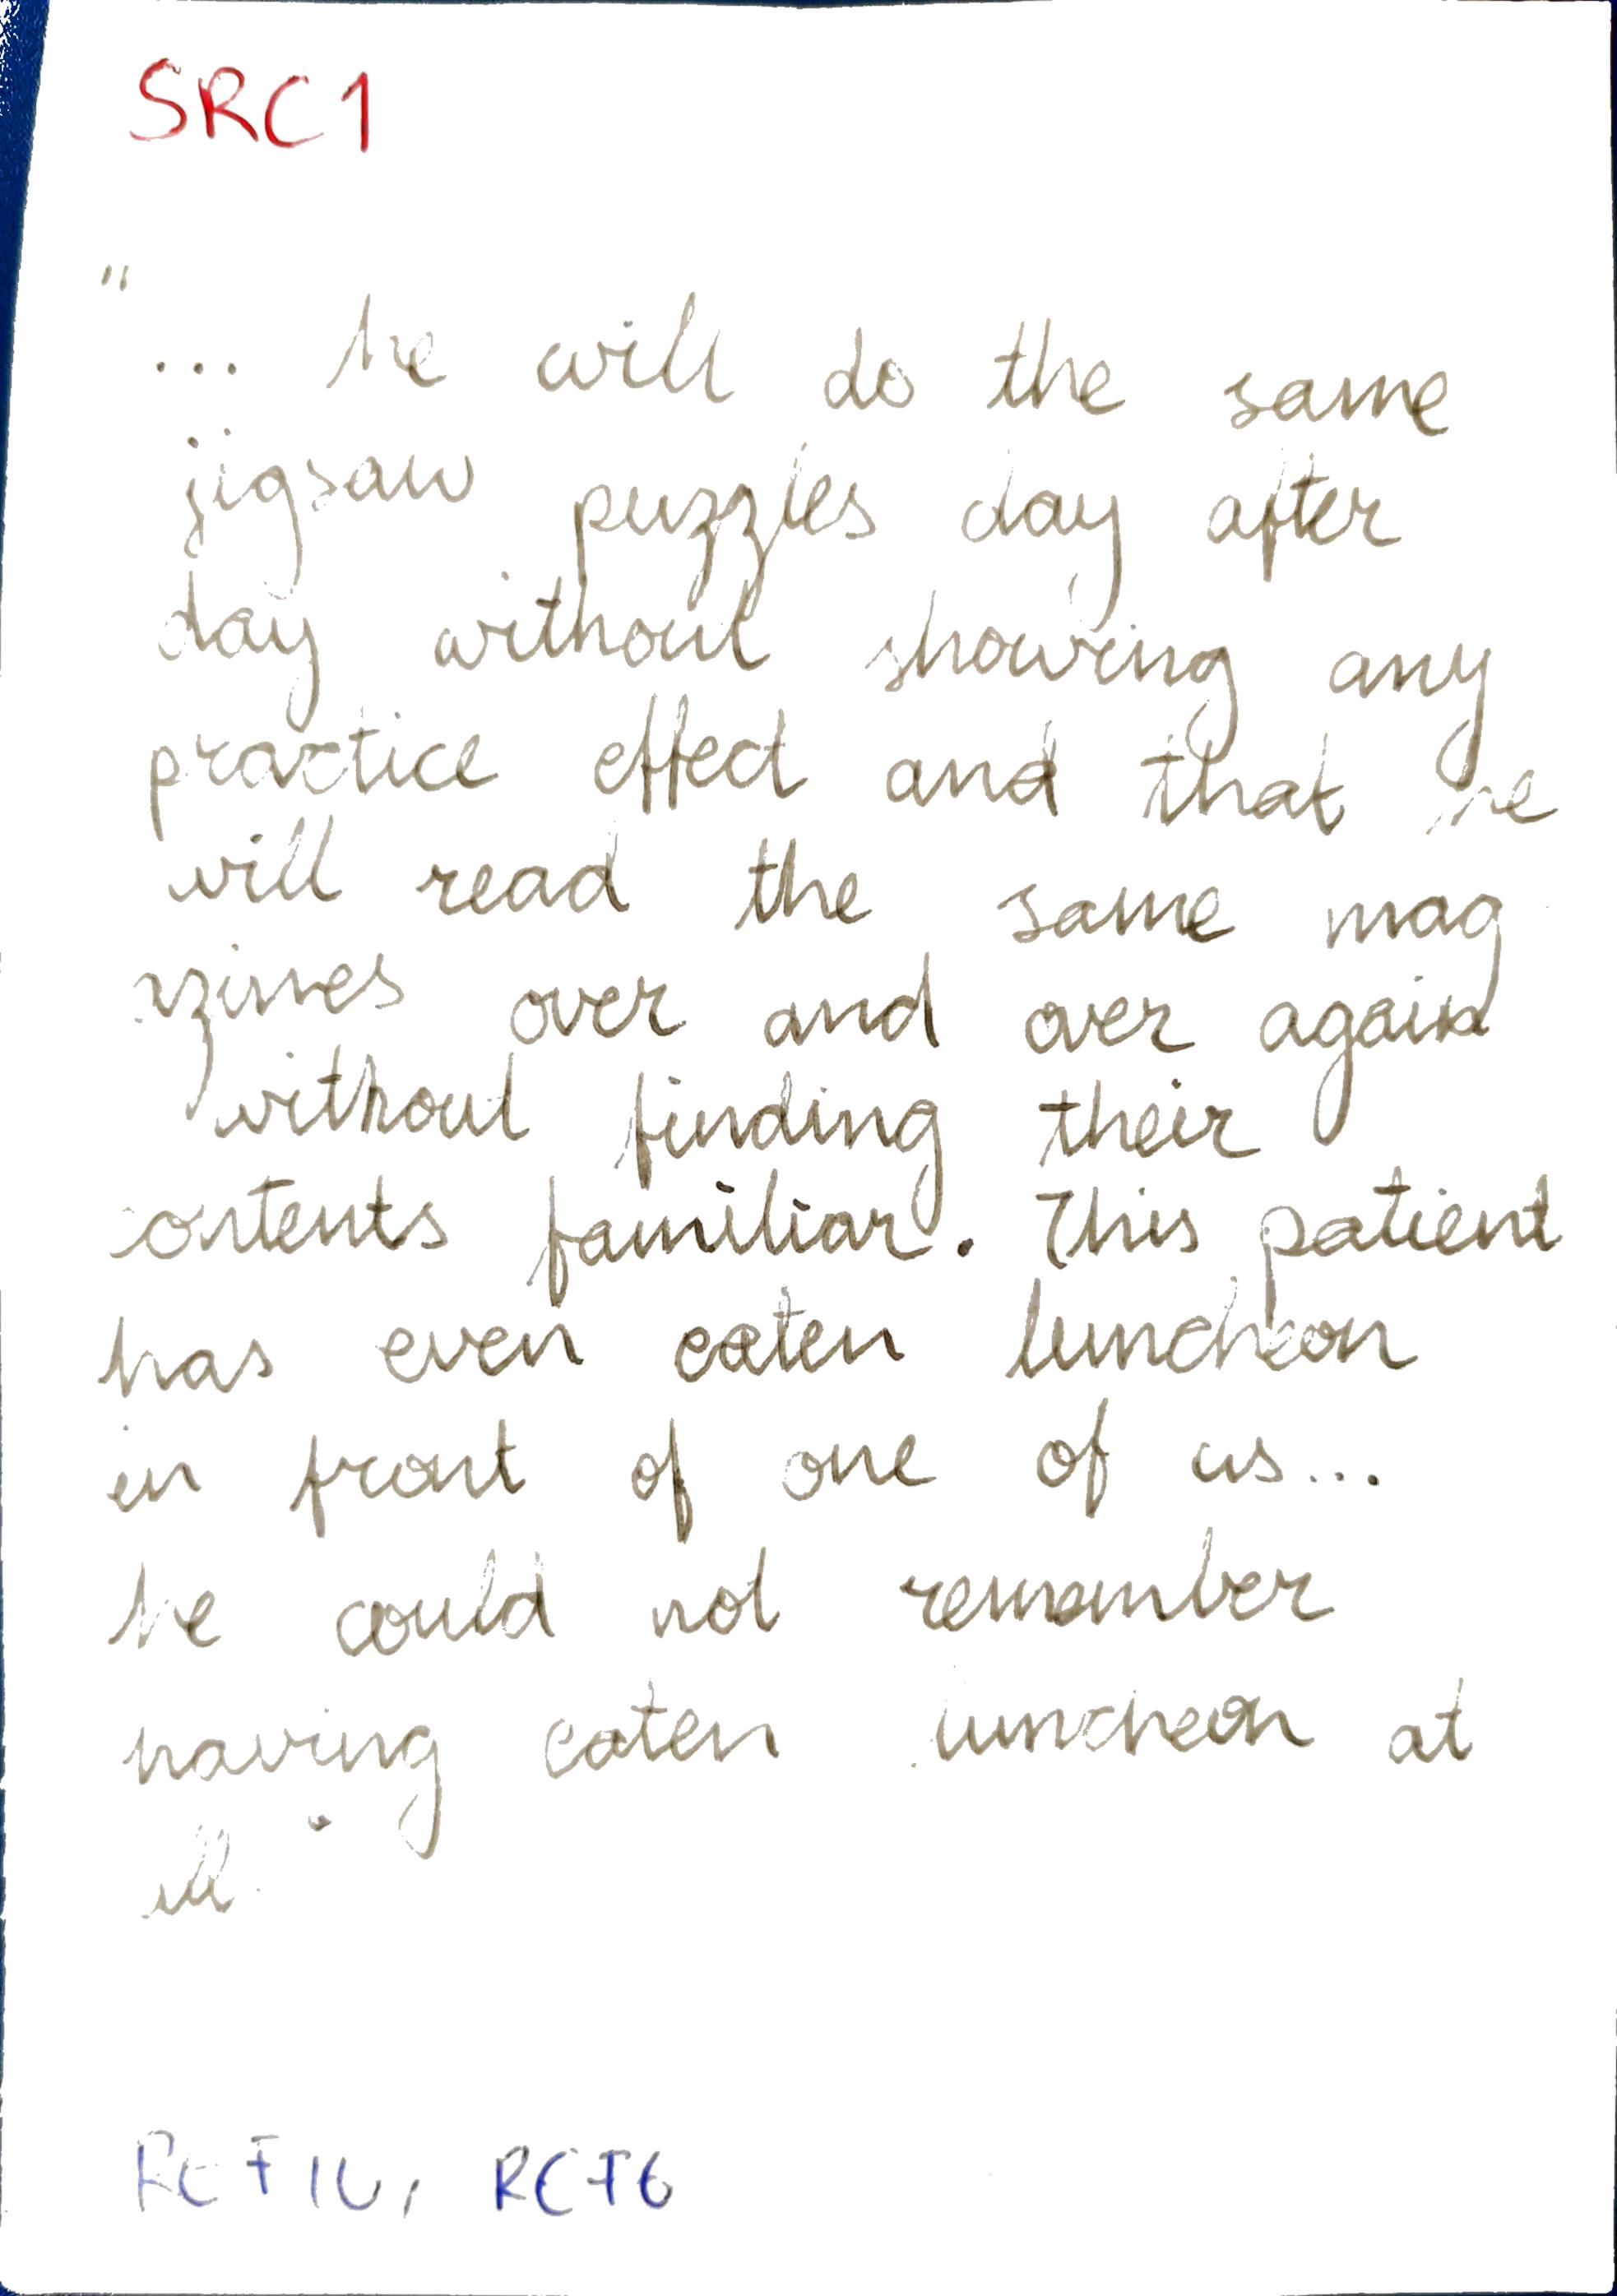 SRC1
"... he will do the same
jigsaw puzzles day after
day without showing any
practice effect and that he
will read the same mag
azines over and over again
without finding their
contents familiar. This patient
has even eaten luncheon
in front of one of us...
he could not remember
having eaten luncheon at
all."